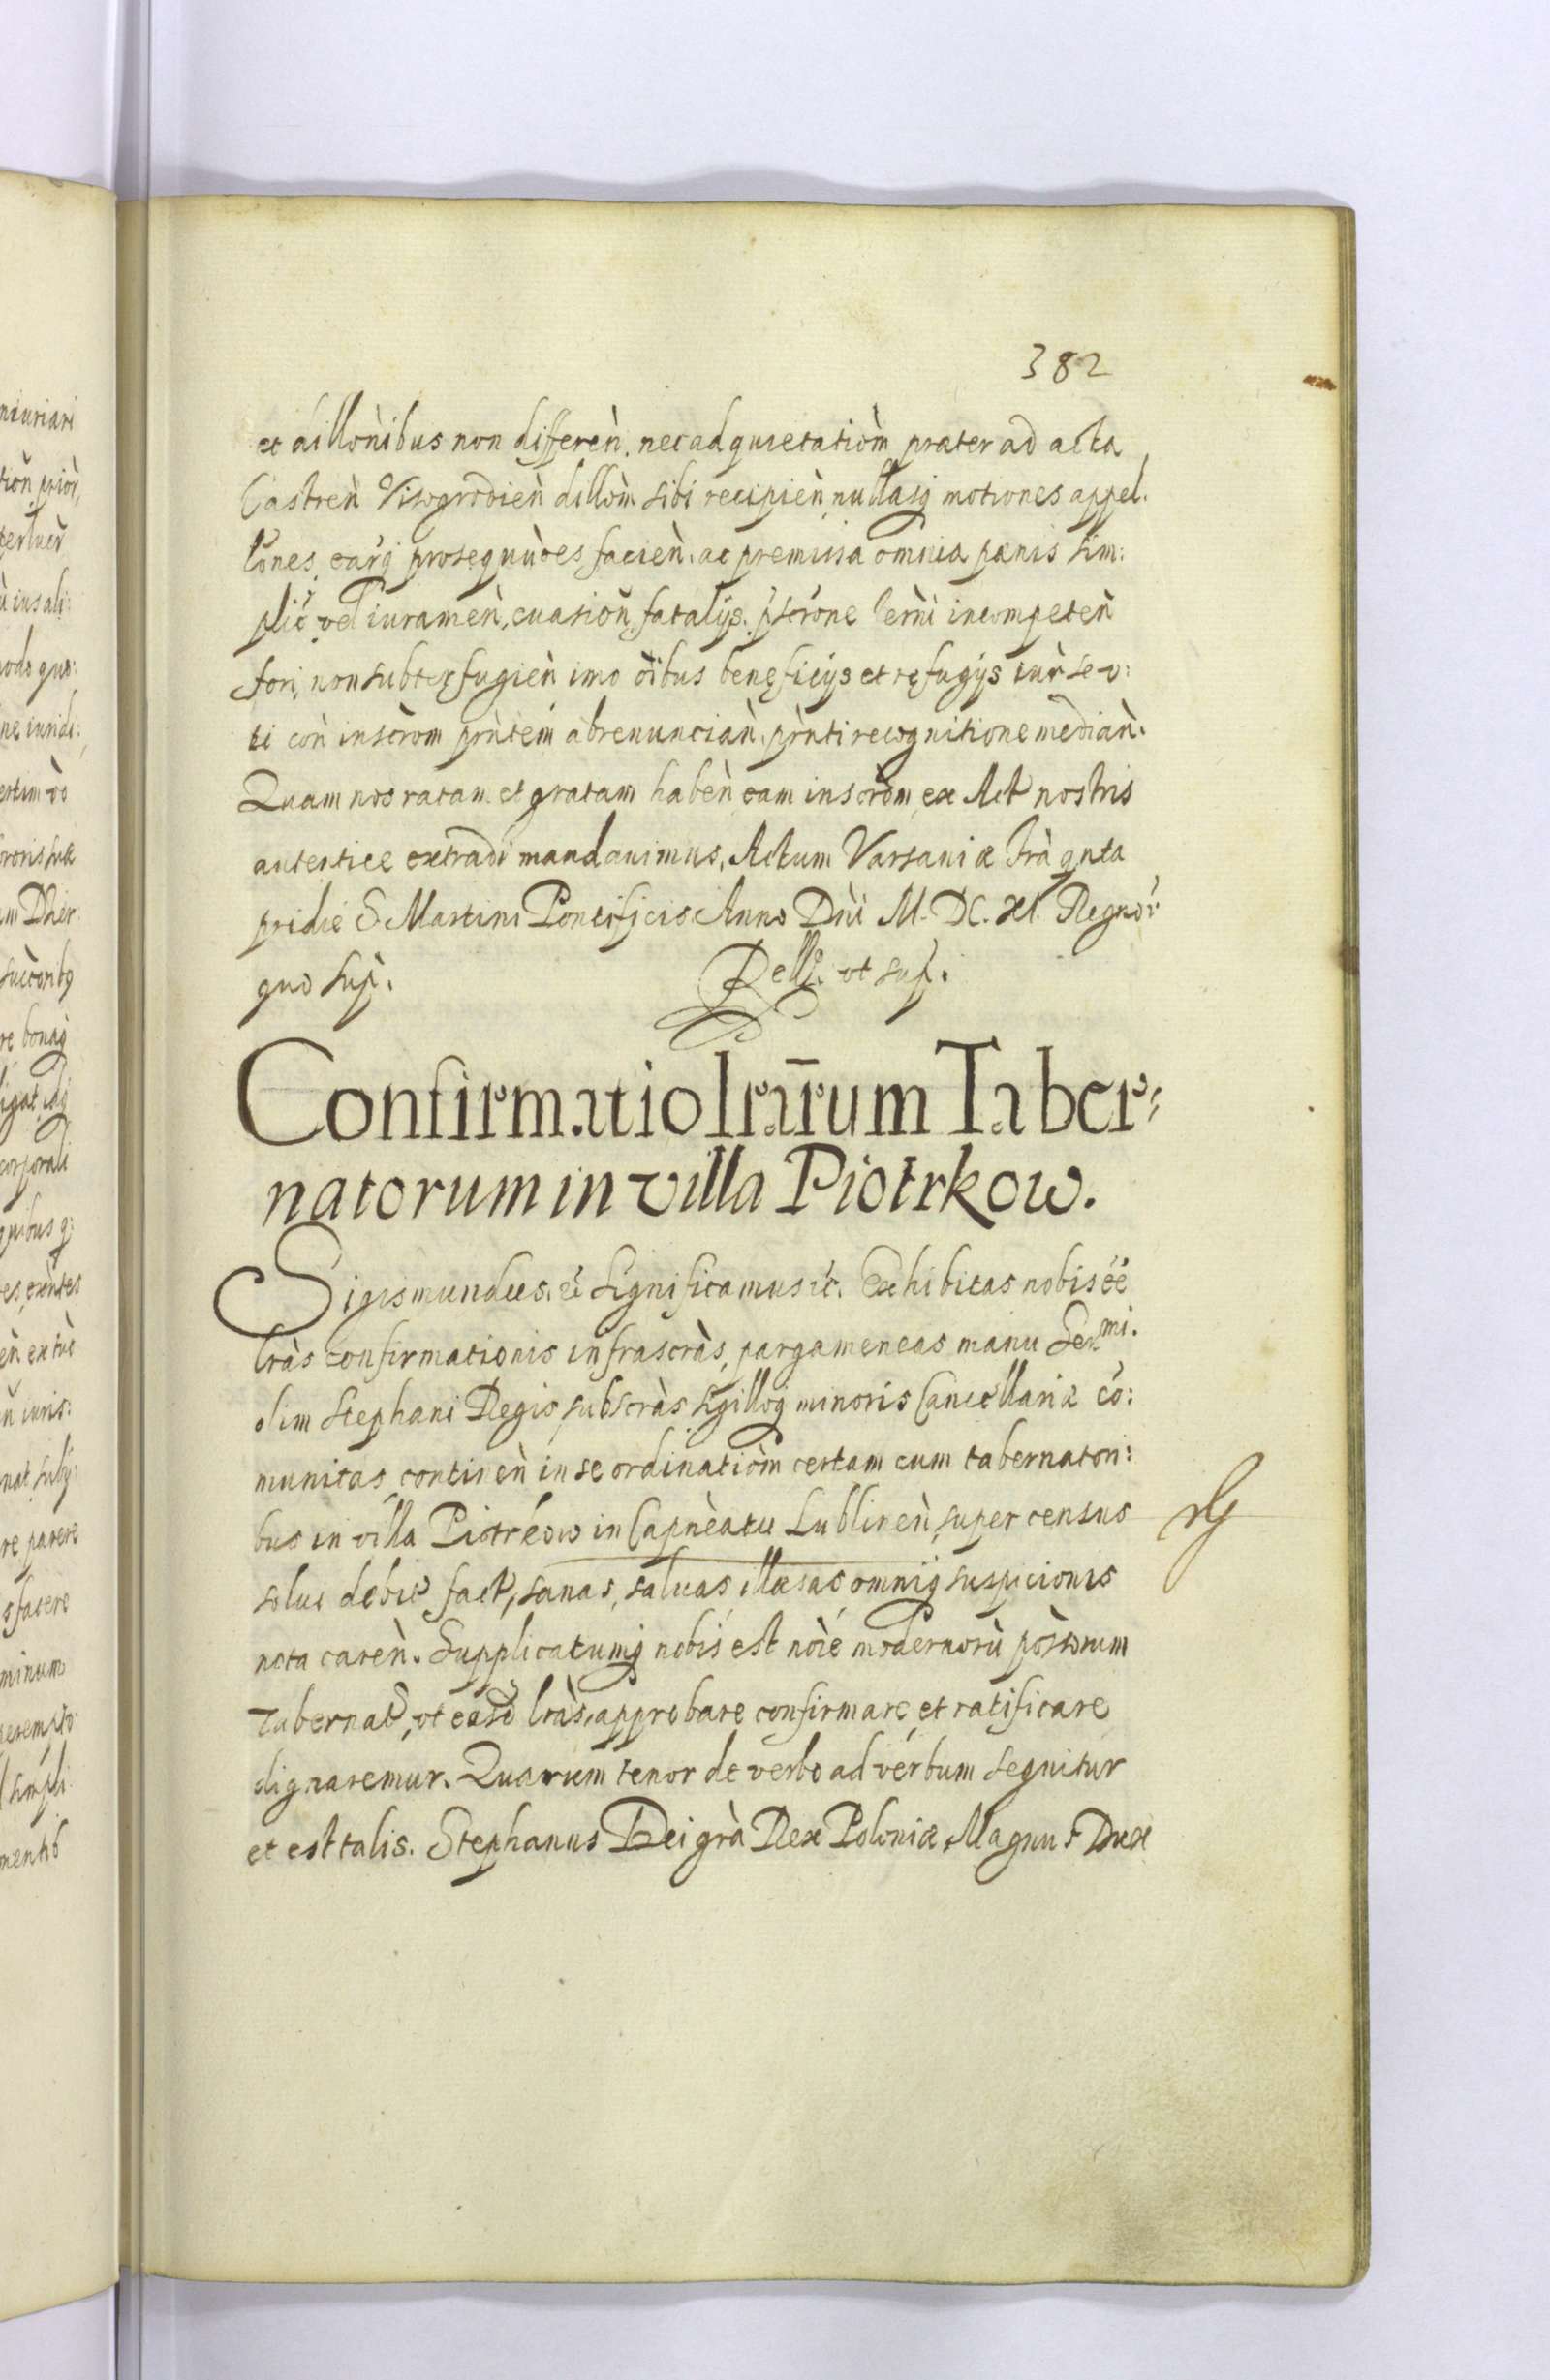 382
et dillon̄ibus non differen̄. nec ad quietatiōm præter ad acta
Castren̄ Visogrodien̄ dillōm sibi recipien̄ nullasq motiones appel.
lōnes, earq prosequūōes facien̄. ac premissa omnia pænis sim:
plić vel iuramen̄, euasion̄ fatalijs. pscr̄one incompeten̄
fori, non subterfugien̄ imo ōibus beneficijs et refugijs iur̄ se v:
ti con̄ inscr̄om pr̄ntem abrenuncian̄. pr̄nti recognitione median̄.
Quam nos ratam et gratam haben̄ eam inscr̄om ex Act nostris
autentice extradi mandauimus. Actum Varsauiæ fr̄a qnta
pridie S Martini Pontificis Anno Dn̄i M. DC. XI. Regnor̄
quo sup̄. Rellō. vt sup̄.
Confirmatio lrār̄um Taber⸗
natorum in villa Piotrkow.
Sigismundus. ec̄ Significamus ec̄. Exhibitas nobis ēē
lr̄as confirmationis infrascr̄as, pargameneas manu Ser.mi.
olim Stephani Regis subscr̄as sigilloq minoris Cancellariæ cō:
munitas continen̄ in se ordinatiōm certam cum tabernatori:
bus in villa Piotrkow in Capn̄eatu Lublinen̄ super census
solui debit fact, sanas, saluas illæsas omniq suspicionis
nota caren̄. Supplicatumq nobis est nōīe modernorū pōssorum
Tabernat, vt easd lr̄as, approbare confirmare et ratificare
dignaremur. Quarum tenor de verbo ad verbum sequitur
et est talis. Stephanus Dei grā Rex Poloniæ Magnus Dux